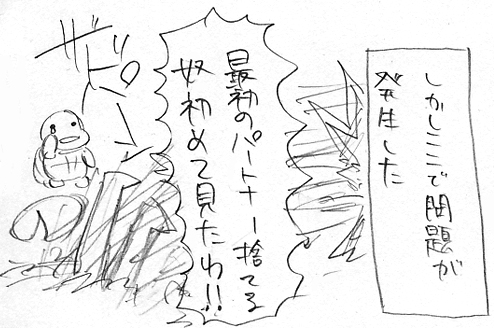 しかしここで問題が
発生した
最初のパートナー捨てる
奴初めて見たわ!!